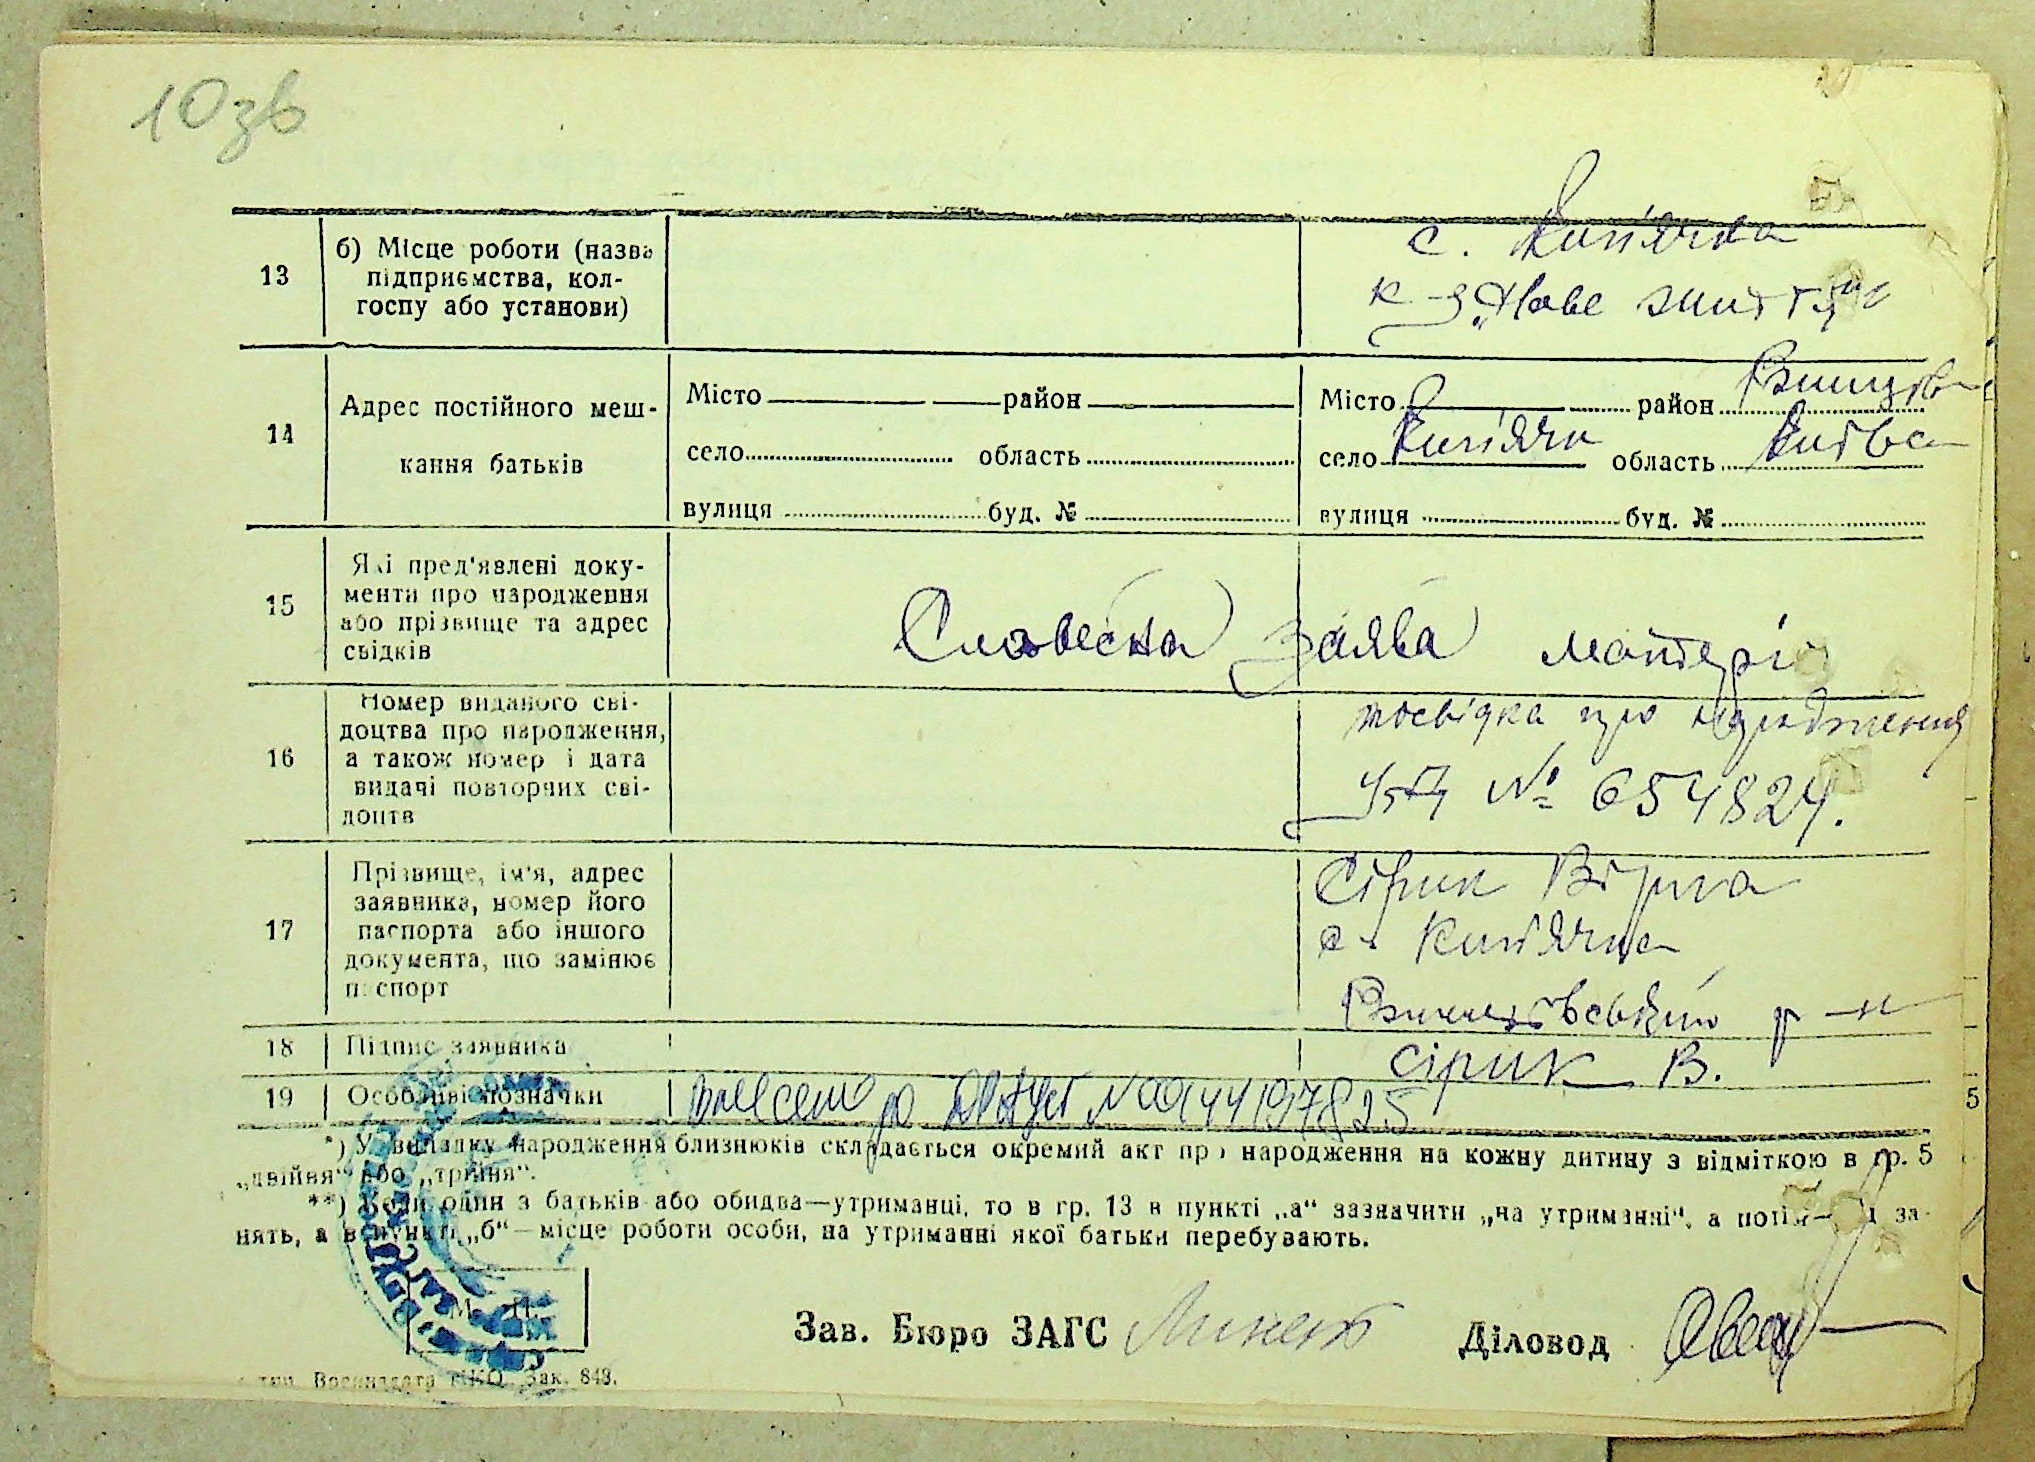 10 зв
13
б) Місце роботи (назва
підприємства, кол-
госпу або установи)
с. Кип'ячка
к-г „Нове життя"
14
Адрес постійного меш-
кання батьків
Місто район
село область
вулиця буд. №
Місто район
село Кип'ячка область
вулиця буд. №
15
Які пред'явлені доку-
менти про народження
або прізвище та адрес
свідків
Словесна заява матері
16
Номер виданого сві-
доцтва про народження,
а також номер і дата
видачі повторних сві-
доцтв
посвідка про народження
№ 654824.
17
Прізвище, ім'я, адрес
заявника, номер його
паспорта або іншого
документа, що замінює
паспорт
Сірик Вірка
с. Кип'ячка
р-н
18
Підпис заявника
Сірик В.
19
Особливі позначки
5
*) У випадку народження близнюків складається окремий акт про народження на кожну дитину з відміткою в гр. 5
„двійня" або „трійня".
**) Коли один з батьків або обидва—утриманці, то в гр. 13 в пункті „а" зазначити „на утриманні", а потім— за-
нять, а в пункті „б"—місце роботи особи, на утриманні якої батьки перебувають.
М. П.
Зав. Бюро ЗАГС
Діловод
Зак. 843.